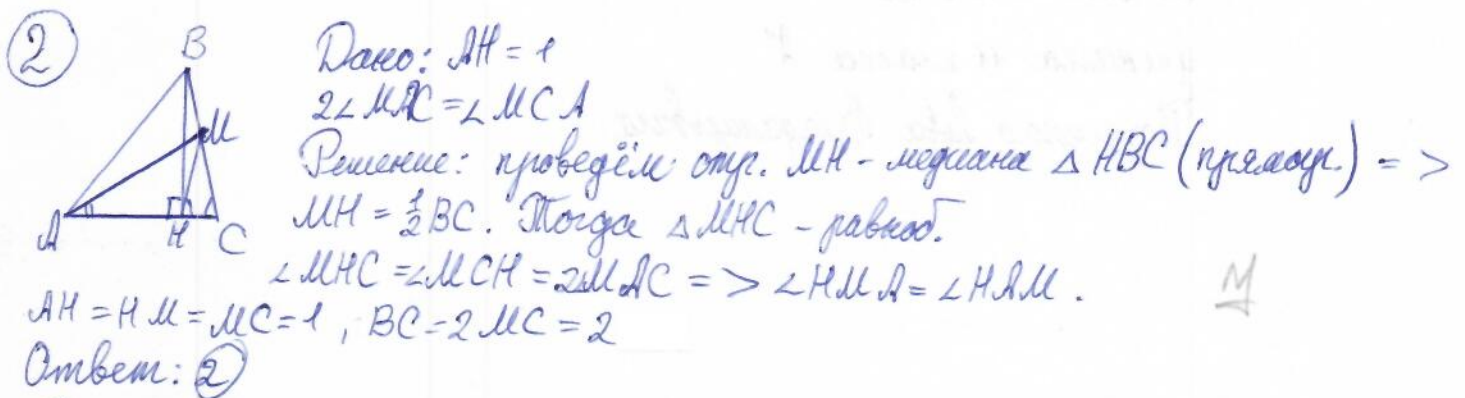 2
B
Дано: AH = 1
2∠MAC = ∠MCA
M
Решение: проведём отр. MH - медиана △ HBC (прямоуг.) =>
A H C
MH = 1/2 BC. Тогда △MHC - равноб.
∠MHC = ∠MCH = 2∠MAC => ∠HMA = ∠HAM.
AH = HM = MC = 1, BC = 2MC = 2
Ответ: 2